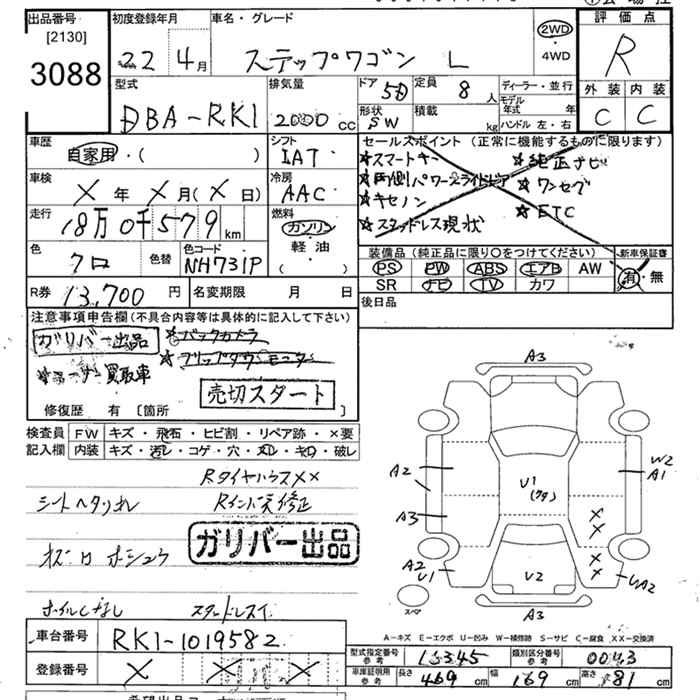 出品番号
[2130]
3088
初度登録年月
22 4月
車名・グレード
ステップワゴン L
2WD
・
4WD
評価点
R
外装 内装
C C
型式
DBA-RK1
排気量
2000 cc
ドア 5D
定員 8 人
形状 SW
積載 kg
ディーラー・並行
モデル年式 年
ハンドル 左・右
車歴
自家用・( )
シフト
IAT
セールスポイント (正常に機能するものに限ります)
☆スマートキー ☆純正ナビ
☆両側パワースライドドア ☆ワンセグ
☆キセノン ☆ETC
☆スタッドレス現状
車検
X 年 X 月(X 日)
冷房
AAC
走行
18万0千579 km
燃料
ガソリン
軽・油
( )
色
クロ
色替
色コード
NH731P
装備品 (純正品に限り〇をつけてください)
新車保証書
PS PW ABS エアB AW
SR ナビ TV カワ
有・無
R券 13,700 円
名変期限 月 日
後日品
注意事項申告欄(不具合内容等は具体的に記入して下さい)
ガリバー出品
☆バックカメラ
☆フリップダウンモニター
買取車
売切スタート
修復歴 有 [箇所 ]
検査員記入欄
FW キズ・飛石・ヒビ割・リペア跡・×要
内装 キズ・汚レ・コゲ・穴・スレ・キレ・破レ
RタイヤハウスXX
シートヘタリ
Rインパネ修正
ガリバー出品
A3
A2
A3
A2
U1
U1
W2
A1
U2
A2
A3
スペア
A-キズ E-エクボ U-凹み W-補修跡 S-サビ C-腐食 XX-交換済
車台番号
RK1-1019582
登録番号
X X X
型式指定番号 参考 15345
類別区分番号 参考 0043
車庫証明用 参考 長さ 469 cm 幅 169 cm 高さ 181 cm